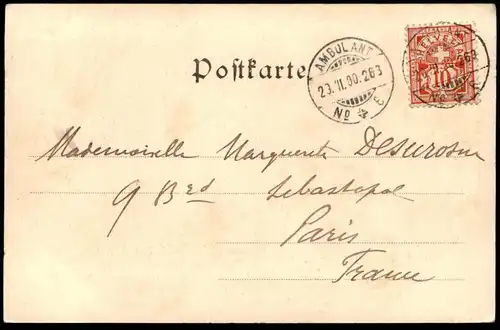 Postkarte
AMBULANT
23.II.00.263
No 4 E
HELVETIA
10
Mademoiselle Marguerite
9 Brd Sebastopol
Paris
France